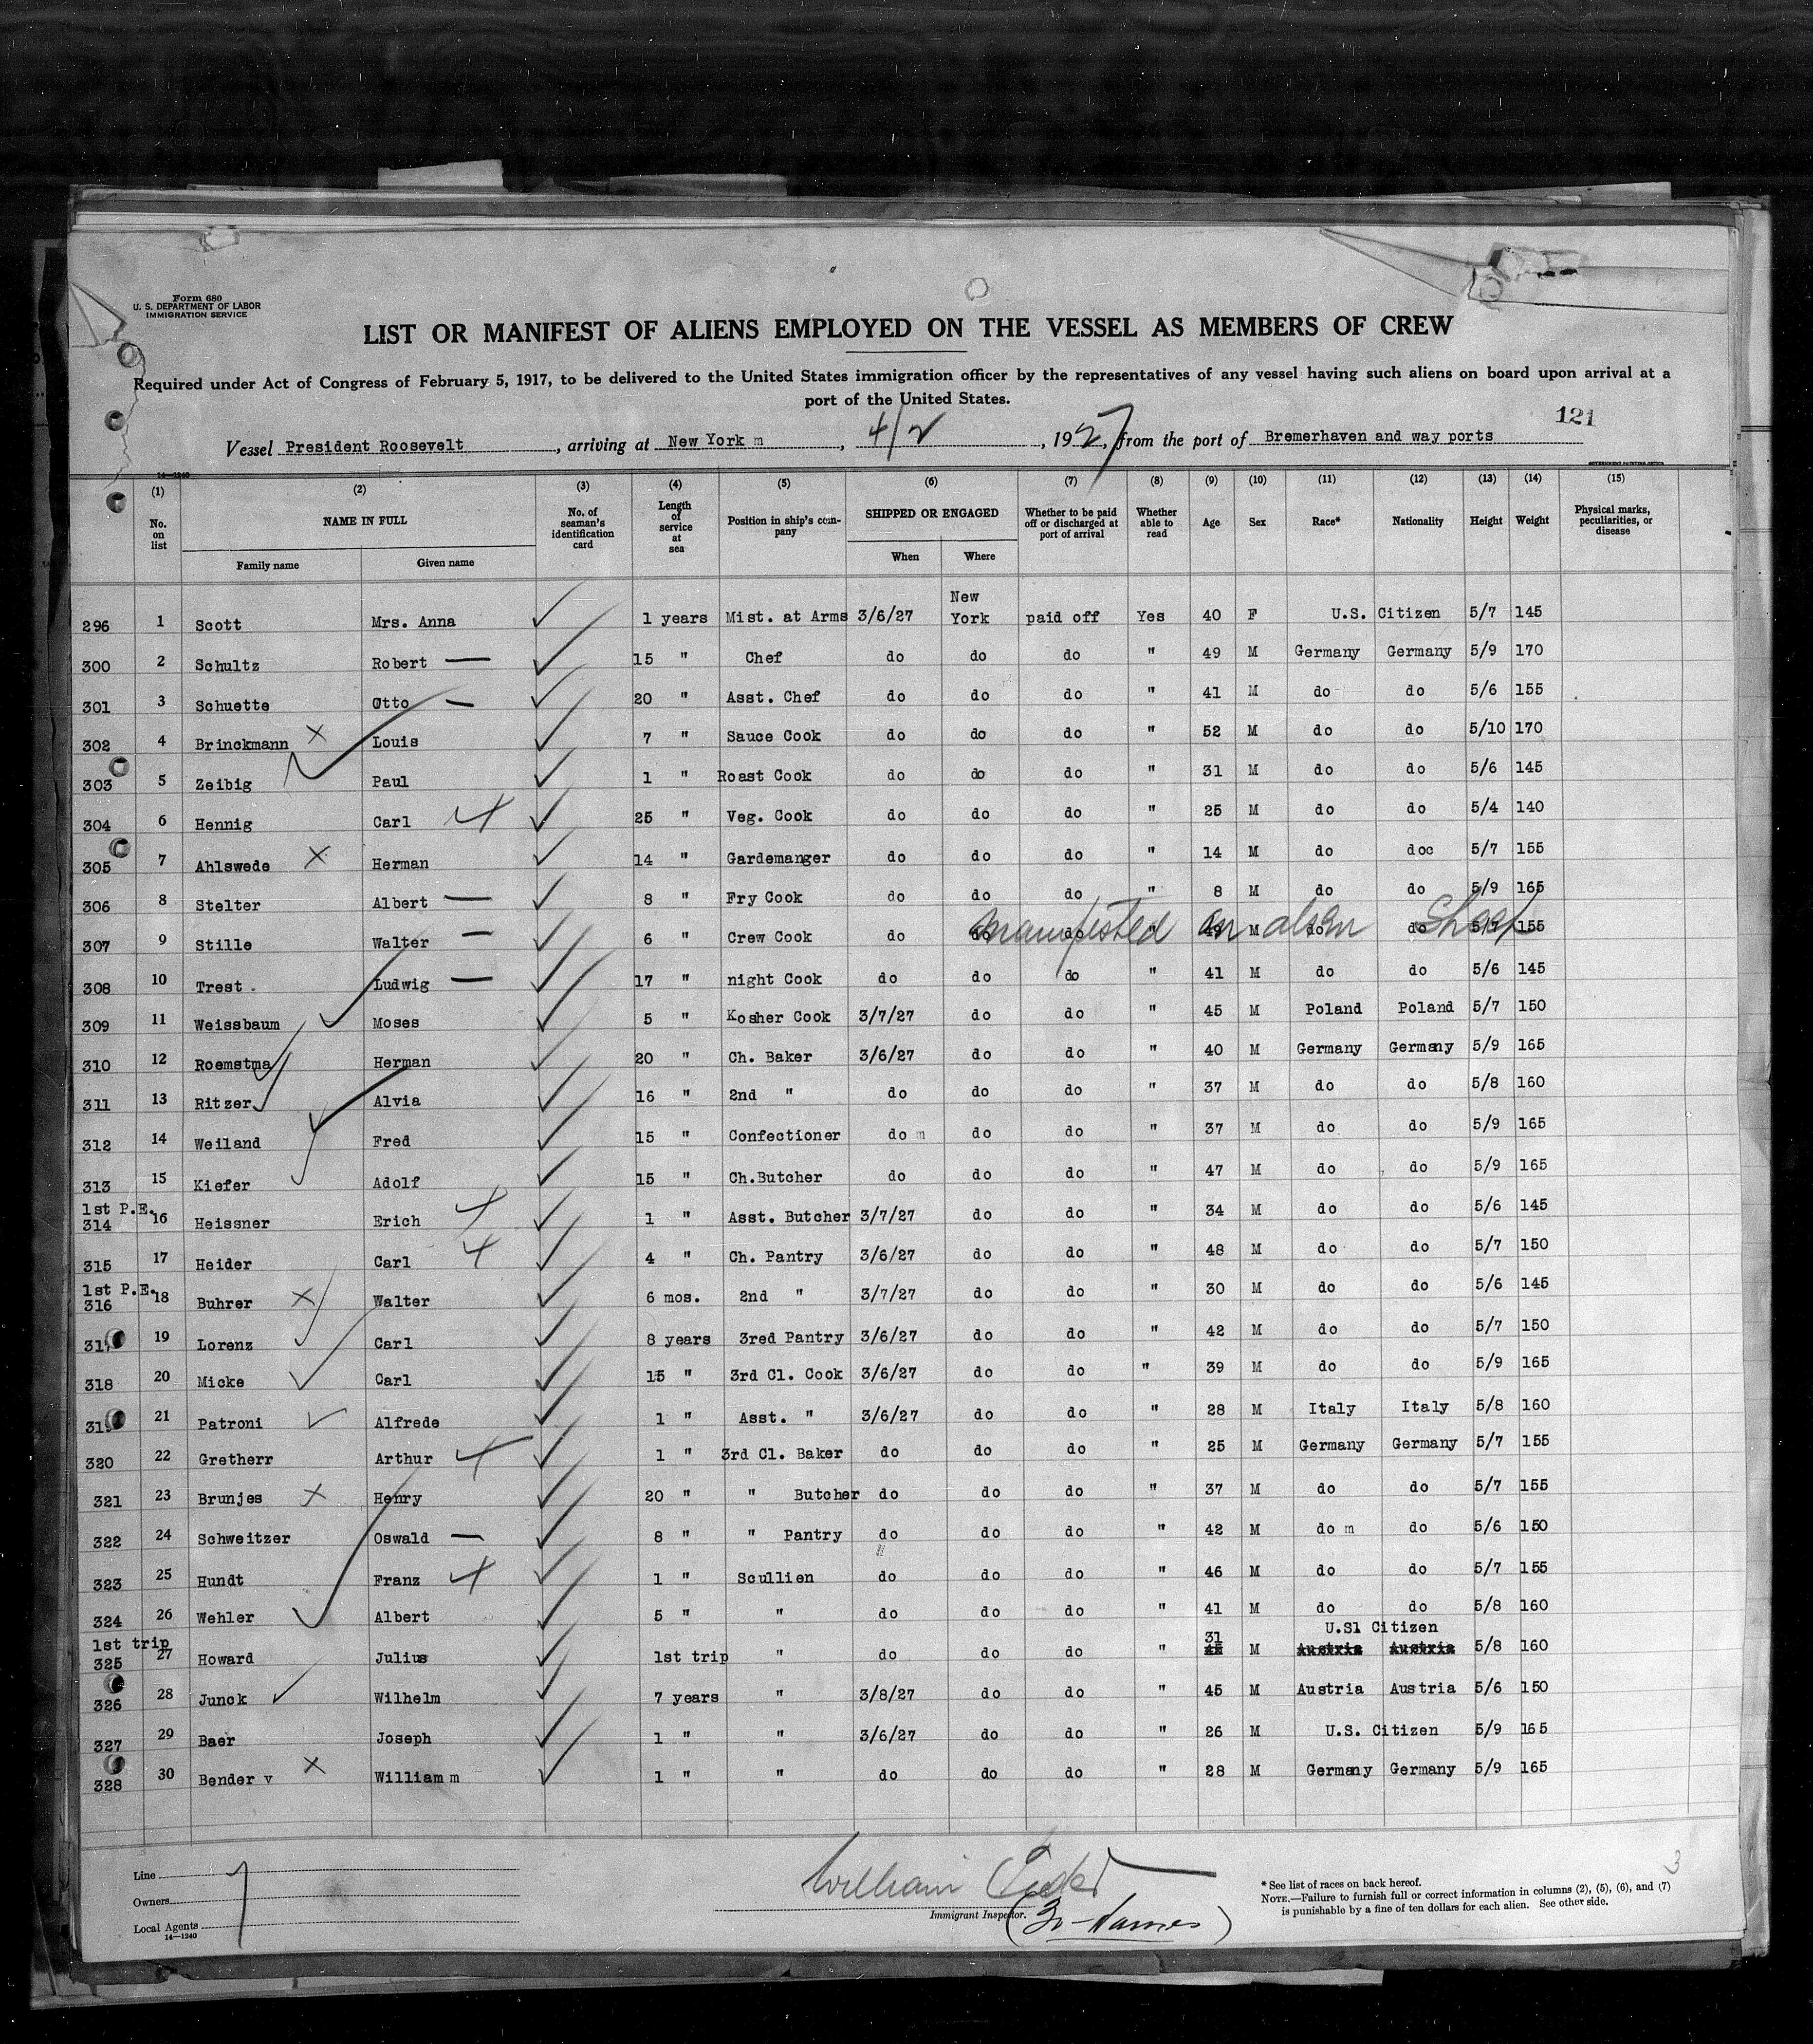 Form 680
U. S. DEPARTMENT OF LABOR
IMMIGRATION SERVICE
LIST OR MANIFEST OF ALIENS EMPLOYED ON THE VESSEL AS MEMBERS OF CREW
Required under Act of Congress of February 5, 1917, to be delivered to the United States immigration officer by the representatives of any vessel having such aliens on board upon arrival at a
port of the United States.
121
Vessel President Roosevelt, arriving at New York m, 4/2, 1927, from the port of Bremerhaven and way ports
14—1240 GOVERNMENT PRINTING OFFICE
(1) (2) (3) (4) (5) (6) (7) (8) (9) (10) (11) (12) (13) (14) (15)
No. on list NAME IN FULL No. of seaman's identification card Length of service at sea Position in ship's company SHIPPED OR ENGAGED Whether to be paid off or discharged at port of arrival Whether able to read Age Sex Race* Nationality Height Weight Physical marks, peculiarities, or disease
Family name Given name When Where
296 1 Scott Mrs. Anna 1 years Mist. at Arms 3/6/27 New York paid off Yes 40 F U.S. Citizen 5/7 145
300 2 Schultz Robert — 15 " Chef do do do " 49 M Germany Germany 5/9 170
301 3 Schuette Otto — 20 " Asst. Chef do do do " 41 M do do 5/6 155
302 4 Brinckmann X Louis 7 " Sauce Cook do do do " 52 M do do 5/10 170
303 5 Zeibig Paul 1 " Roast Cook do do do " 31 M do do 5/6 145
304 6 Hennig Carl 25 " Veg. Cook do do do " 25 M do do 5/4 140
305 7 Ahlswede X Herman 14 " Gardemanger do do do " 14 M do doc 5/7 155
306 8 Stelter Albert — 8 " Fry Cook do do do " 8 M do do 5/9 165
manifested on alien Sheet
307 9 Stille Walter — 6 " Crew Cook do do do " M do do 155
308 10 Trest. Ludwig — 17 " night Cook do do do " 41 M do do 5/6 145
309 11 Weissbaum Moses 5 " Kosher Cook 3/7/27 do do " 45 M Poland Poland 5/7 150
310 12 Roemstma Herman 20 " Ch. Baker 3/6/27 do do " 40 M Germany Germany 5/9 165
311 13 Ritzer Alvia 16 " 2nd " do do do " 37 M do do 5/8 160
312 14 Weiland Fred 15 " Confectioner do m do do " 37 M do do 5/9 165
313 15 Kiefer Adolf 15 " Ch.Butcher do do do " 47 M do do 5/9 165
1st P.E.
314 16 Heissner Erich 1 " Asst. Butcher 3/7/27 do do " 34 M do do 5/6 145
315 17 Heider Carl 4 " Ch. Pantry 3/6/27 do do " 48 M do do 5/7 150
1st P.E.
316 18 Buhrer X Walter 6 mos. 2nd " 3/7/27 do do " 30 M do do 5/6 145
31 19 Lorenz Carl 8 years 3red Pantry 3/6/27 do do " 42 M do do 5/7 150
318 20 Micke Carl 15 " 3rd Cl. Cook 3/6/27 do do " 39 M do do 5/9 165
31 21 Patroni Alfrede 1 " Asst. " 3/6/27 do do " 28 M Italy Italy 5/8 160
320 22 Gretherr Arthur 1 " 3rd Cl. Baker do do do " 25 M Germany Germany 5/7 155
321 23 Brunjes X Henry 20 " " Butcher do do do " 37 M do do 5/7 155
322 24 Schweitzer Oswald — 8 " " Pantry do do do " 42 M do m do 5/6 150
323 25 Hundt Franz 1 " Scullien do do do " 46 M do do 5/7 155
324 26 Wehler Albert 5 " " do do do " 41 M do do 5/8 160
1st trip 31 U.Sl Citizen
325 27 Howard Julius 1st trip " do do do " 45 M Austria Austria 5/8 160
326 28 Junck Wilhelm 7 years " 3/8/27 do do " 45 M Austria Austria 5/6 150
327 29 Baer Joseph 1 " " 3/6/27 do do " 26 M U.S. Citizen 5/9 165
328 30 Bender v X William m 1 " " do do do " 28 M Germany Germany 5/9 165
Line
Owners
Local Agents
14—1240
William
Immigrant Inspector.
(30 - Names)
3
* See list of races on back hereof.
NOTE.—Failure to furnish full or correct information in columns (2), (5), (6), and (7)
is punishable by a fine of ten dollars for each alien. See other side.